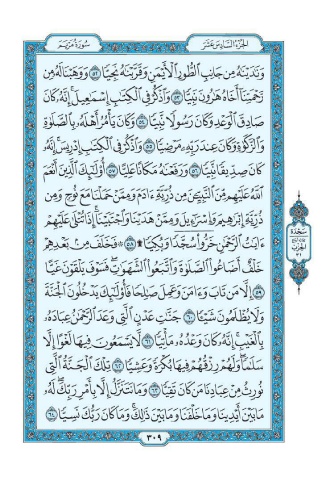 سُورَةُ مَرْيَم
الجُزْءُ السَّادِسَ عَشَرَ
وَنَٰدَيْنَٰهُ مِن جَانِبِ ٱلطُّورِ ٱلْأَيْمَنِ وَقَرَّبْنَٰهُ نَجِيًّا ٥٢ وَوَهَبْنَا لَهُۥ مِن
رَّحْمَتِنَآ أَخَاهُ هَٰرُونَ نَبِيًّا ٥٣ وَٱذْكُرْ فِى ٱلْكِتَٰبِ إِسْمَٰعِيلَ إِنَّهُۥ كَانَ
صَادِقَ ٱلْوَعْدِ وَكَانَ رَسُولًا نَّبِيًّا ٥٤ وَكَانَ يَأْمُرُ أَهْلَهُۥ بِٱلصَّلَوٰةِ
وَٱلزَّكَوٰةِ وَكَانَ عِندَ رَبِّهِۦ مَرْضِيًّا ٥٥ وَٱذْكُرْ فِى ٱلْكِتَٰبِ إِدْرِيسَ إِنَّهُۥ
كَانَ صِدِّيقًا نَّبِيًّا ٥٦ وَرَفَعْنَٰهُ مَكَانًا عَلِيًّا ٥٧ أُو۟لَٰٓئِكَ ٱلَّذِينَ أَنْعَمَ
ٱللَّهُ عَلَيْهِم مِّنَ ٱلنَّبِيِّۦنَ مِن ذُرِّيَّةِ ءَادَمَ وَمِمَّنْ حَمَلْنَا مَعَ نُوحٍ وَمِن
ذُرِّيَّةِ إِبْرَٰهِيمَ وَإِسْرَٰٓءِيلَ وَمِمَّنْ هَدَيْنَا وَٱجْتَبَيْنَآ إِذَا تُتْلَىٰ عَلَيْهِمْ
ءَايَٰتُ ٱلرَّحْمَٰنِ خَرُّوا۟ سُجَّدًا وَبُكِيًّا ۩ ٥٨ ۞ فَخَلَفَ مِنۢ بَعْدِهِمْ
خَلْفٌ أَضَاعُوا۟ ٱلصَّلَوٰةَ وَٱتَّبَعُوا۟ ٱلشَّهَوَٰتِ فَسَوْفَ يَلْقَوْنَ غَيًّا
٥٩ إِلَّا مَن تَابَ وَءَامَنَ وَعَمِلَ صَٰلِحًا فَأُو۟لَٰٓئِكَ يَدْخُلُونَ ٱلْجَنَّةَ
وَلَا يُظْلَمُونَ شَيْـًٔا ٦٠ جَنَّٰتِ عَدْنٍ ٱلَّتِى وَعَدَ ٱلرَّحْمَٰنُ عِبَادَهُۥ
بِٱلْغَيْبِ إِنَّهُۥ كَانَ وَعْدُهُۥ مَأْتِيًّا ٦١ لَّا يَسْمَعُونَ فِيهَا لَغْوًا إِلَّا
سَلَٰمًا وَلَهُمْ رِزْقُهُمْ فِيهَا بُكْرَةً وَعَشِيًّا ٦٢ تِلْكَ ٱلْجَنَّةُ ٱلَّتِى
نُورِثُ مِنْ عِبَادِنَا مَن كَانَ تَقِيًّا ٦٣ وَمَا نَتَنَزَّلُ إِلَّا بِأَمْرِ رَبِّكَ لَهُۥ
مَا بَيْنَ أَيْدِينَا وَمَا خَلْفَنَا وَمَا بَيْنَ ذَٰلِكَ وَمَا كَانَ رَبُّكَ نَسِيًّا ٦٤
سَجْدَة
الحِزْب
٣١
٣٠٩